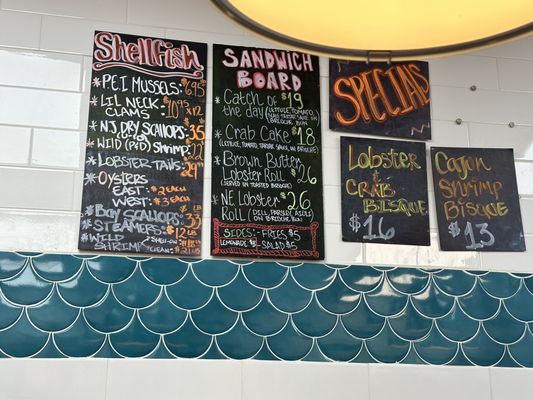 Shellfish
* P.E.I MUSSELS: 6.95
* LIL NECK CLAMS 10.95 x12
* NJ DRY SCALLOPS: 35
* WILD SHRIMP: 22
* LOBSTER TAILS:
* OYSTERS
EAST : $2 EACH
WEST : $3 EACH
* BAY SCALLOPS: 33
* STEAMERS: $12
* WILD SHRIMP
SHELL-ON
CLEAN
SANDWICH BOARD
Catch of the day $19
(LETTUCE, TOMATO,
TARTAR SAUCE
IN BRIOCHE)
Crab Cake $18
(LETTUCE, TOMATO, TARTAR SAUCE in BRIOCHE)
Brown Butter
Lobster Roll $26
(SERVED ON TOASTED BRIOCHE)
NE Lobster $26
Roll (DELI MAYO, PARSLEY
ON BRIOCHE BUN)
SIDES: FRIES $5
LEMONADE $ SALAD $5
SPECIALS
Lobster
& CRAB
BISQUE
$16
Cajun
Shrimp
Bisque
$13